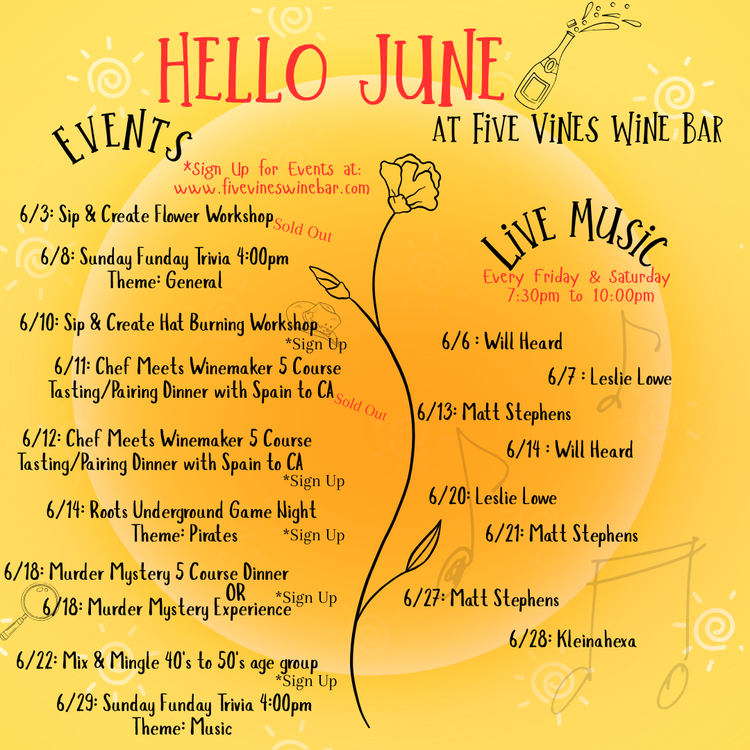 HELLO JUNE
AT FIVE VINES WINE BAR
EVENTS
*Sign Up for Events at:
www.fivevineswinebar.com
6/3: Sip & Create Flower Workshop
Sold Out
6/8: Sunday Funday Trivia 4:00pm
Theme: General
6/10: Sip & Create Hat Burning Workshop
*Sign Up
6/11: Chef Meets Winemaker 5 Course
Tasting/Pairing Dinner with Spain to CA
Sold Out
6/12: Chef Meets Winemaker 5 Course
Tasting/Pairing Dinner with Spain to CA
*Sign Up
6/14: Roots Underground Game Night
Theme: Pirates *Sign Up
6/18: Murder Mystery 5 Course Dinner
OR
6/18: Murder Mystery Experience *Sign Up
6/22: Mix & Mingle 40's to 50's age group
*Sign Up
6/29: Sunday Funday Trivia 4:00pm
Theme: Music
LIVE MUSIC
Every Friday & Saturday
7:30pm to 10:00pm
6/6 : Will Heard
6/7 : Leslie Lowe
6/13: Matt Stephens
6/14 : Will Heard
6/20: Leslie Lowe
6/21: Matt Stephens
6/27: Matt Stephens
6/28: Kleinahexa